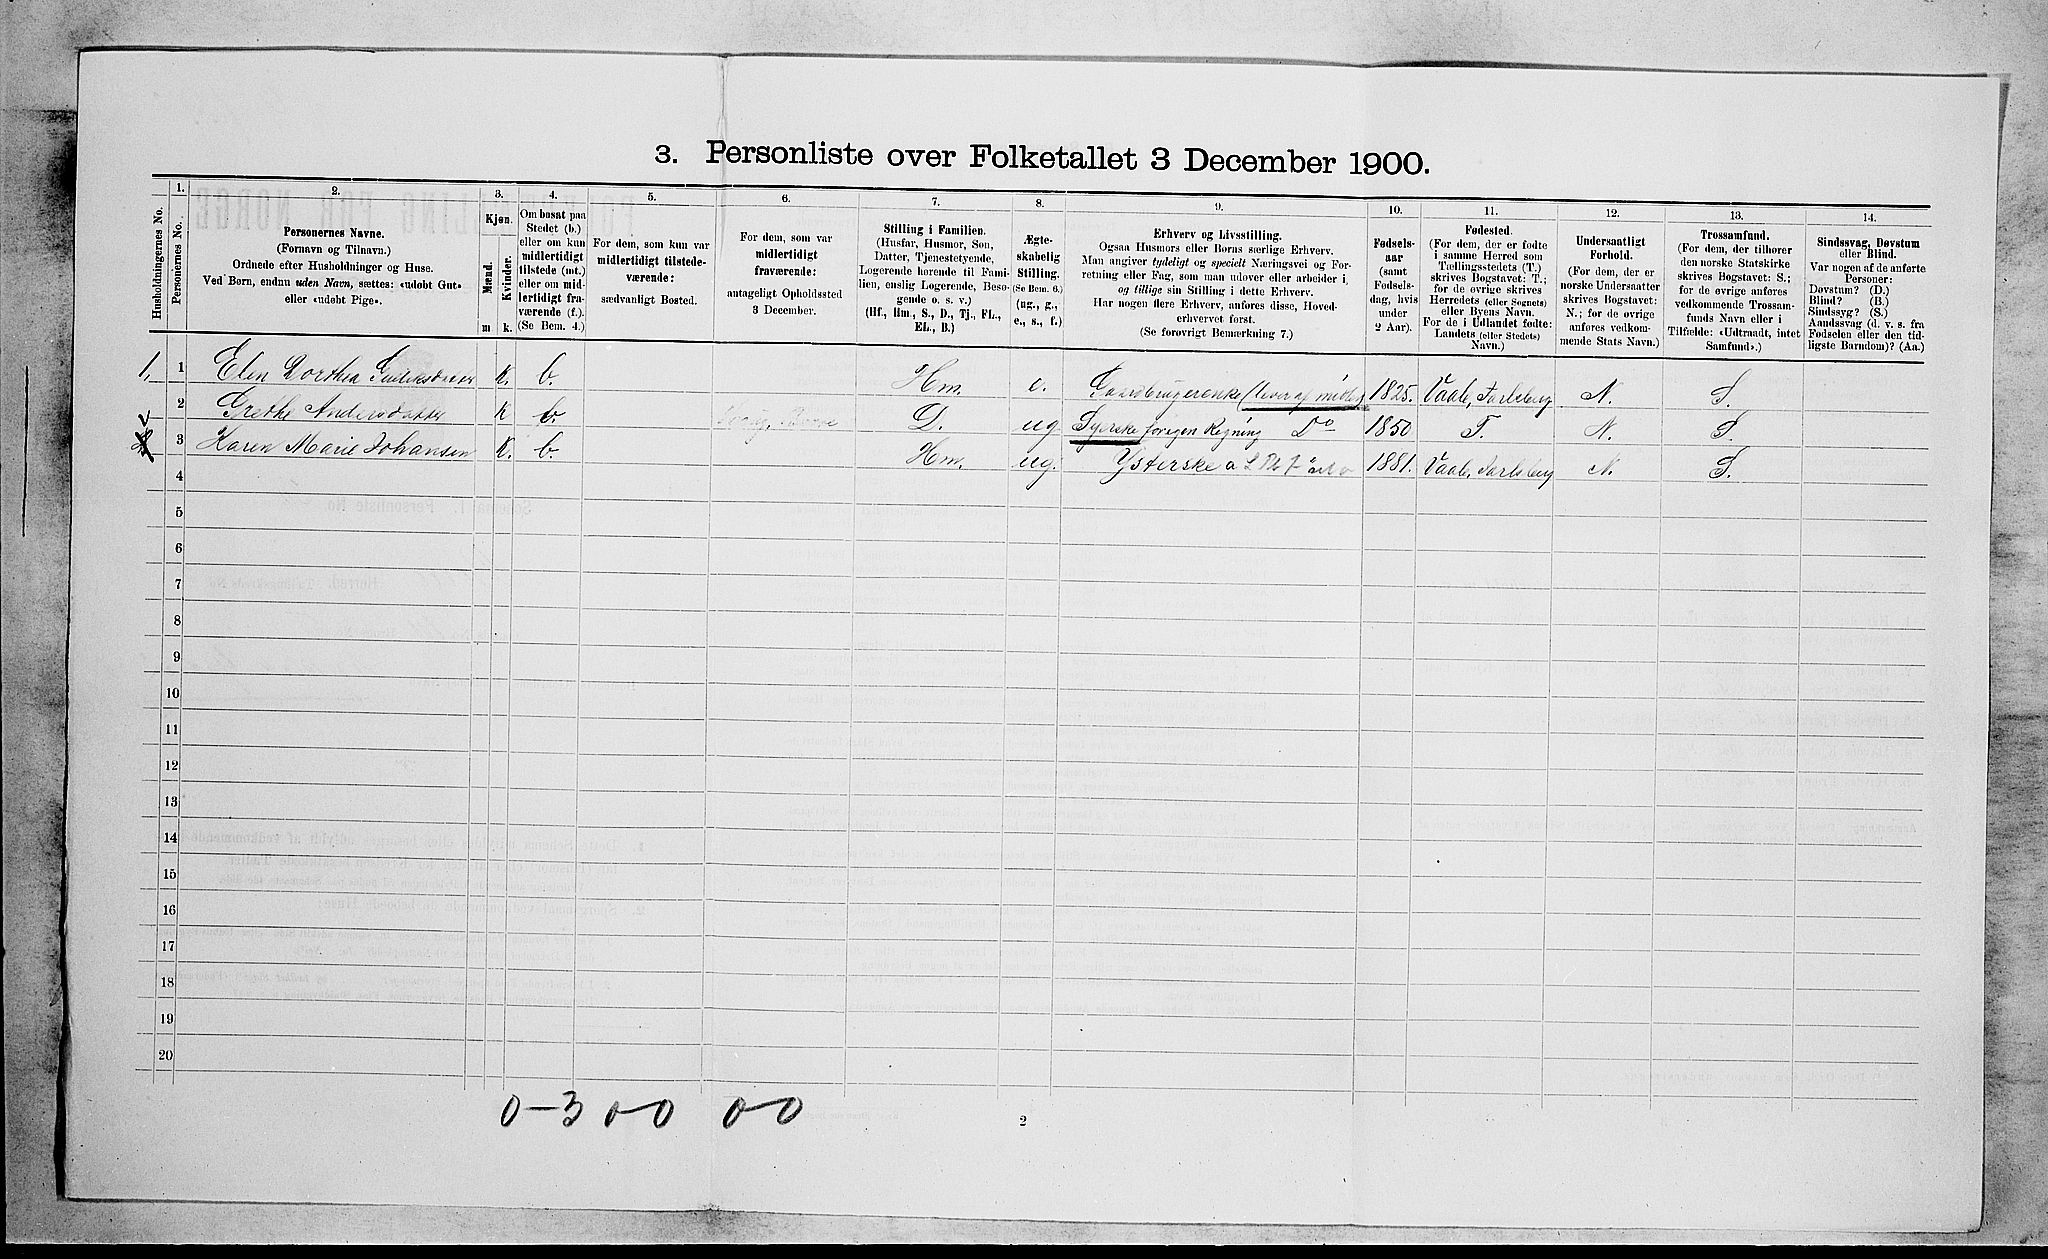 3. Personliste over Folketallet 3 December 1900.
Husholdningernes No.
1.
Personernes No.
2.
Personernes Navne.
(Fornavn og Tilnavn.)
Ordnede efter Husholdninger og Huse.
Ved Børn, endnu uden Navn, sættes: «udøbt Gut»
eller «udøbt Pige».
3.
Kjøn.
Mænd.
Kvinder.
m
k.
4.
Om bosat paa
Stedet (b.)
eller om kun
midlertidigt
tilstede (mt.)
eller om mid-
lertidigt fra-
værende (f.).
(Se Bem. 4.)
5.
For dem, som kun var
midlertidigt tilstede-
værende:
sædvanligt Bosted.
6.
For dem, som var
midlertidigt
fraværende:
antageligt Opholdssted
3 December.
7.
Stilling i Familien.
(Husfar, Husmor, Søn,
Datter, Tjenestetyende,
Logerende hørende til Fami-
lien, enslig Logerende, Besø-
gende o. s. v.)
(Hf., Hm., S., D., Tj., FL.,
EL., B.)
8.
Ægte-
skabelig
Stilling.
(Se Bem. 6.)
(ug., g.,
e., s., f.)
9.
Erhverv og Livsstilling.
Ogsaa Husmors eller Børns særlige Erhverv.
Man angiver tydeligt og specielt Næringsvei og For-
retning eller Fag, som man udøver eller arbeider i,
og tillige sin Stilling i dette Erhverv.
Har nogen flere Erhverv, anføres disse, Hoved-
erhvervet først.
(Se forøvrigt Bemærkning 7.)
10.
Fødsels-
aar
(samt
Fødsels-
dag, hvis
under
2 Aar).
11.
Fødested.
(For dem, der er fødte
i samme Herred som
Tællingsstedets (T.)
skrives Bogstavet: T.;
for de øvrige skrives
Herredets (eller Sognets)
eller Byens Navn.
For de i Udlandet fødte:
Landets (eller Stedets)
Navn.)
12.
Undersaatligt
Forhold.
(For dem, der er
norske Undersaatter
skrives Bogstavet:
N.; for de øvrige
anføres vedkom-
mende Stats Navn.)
13.
Trossamfund.
(For dem, der tilhører
den norske Statskirke
skrives Bogstavet: S.;
for de øvrige anføres
vedkommende Trossam-
funds Navn eller i
Tilfælde: «Udtraadt, intet
Samfund».)
14.
Sindssvag, Døvstum
eller Blind.
Var nogen af de anførte
Personer:
Døvstum? (D.)
Blind? (B.)
Sindssyg? (S.)
Aandssvag (d. v. s. fra
Fødselen eller den tid-
ligste Barndom)? (Aa.)
1. 1 Elen Dorthea K. b. Hm. e. Gaardbrugerenke (lever af midler) 1825. Vaale, Jarlsberg N. S.
2 Grethe Andersdatter K b. D. ug Syerske for egen Regning Do 1850 T. N. S.
2 3 Karen Marie Johansen K. b. Hm. ug. Ysterske 1881. Vaale, Jarlsberg N. S.
4
5
6
7
8
9
10
11
12
13
14
15
16
17
18
19
20
0-3 0-0 0-0
2